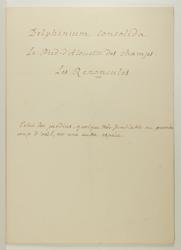 Delphinium consolida
Le Pied-d'Alouette des champs
Les Renoncules
Celui des jardins, quoique très semblable au premier
coup d'œil, est une autre espèce.